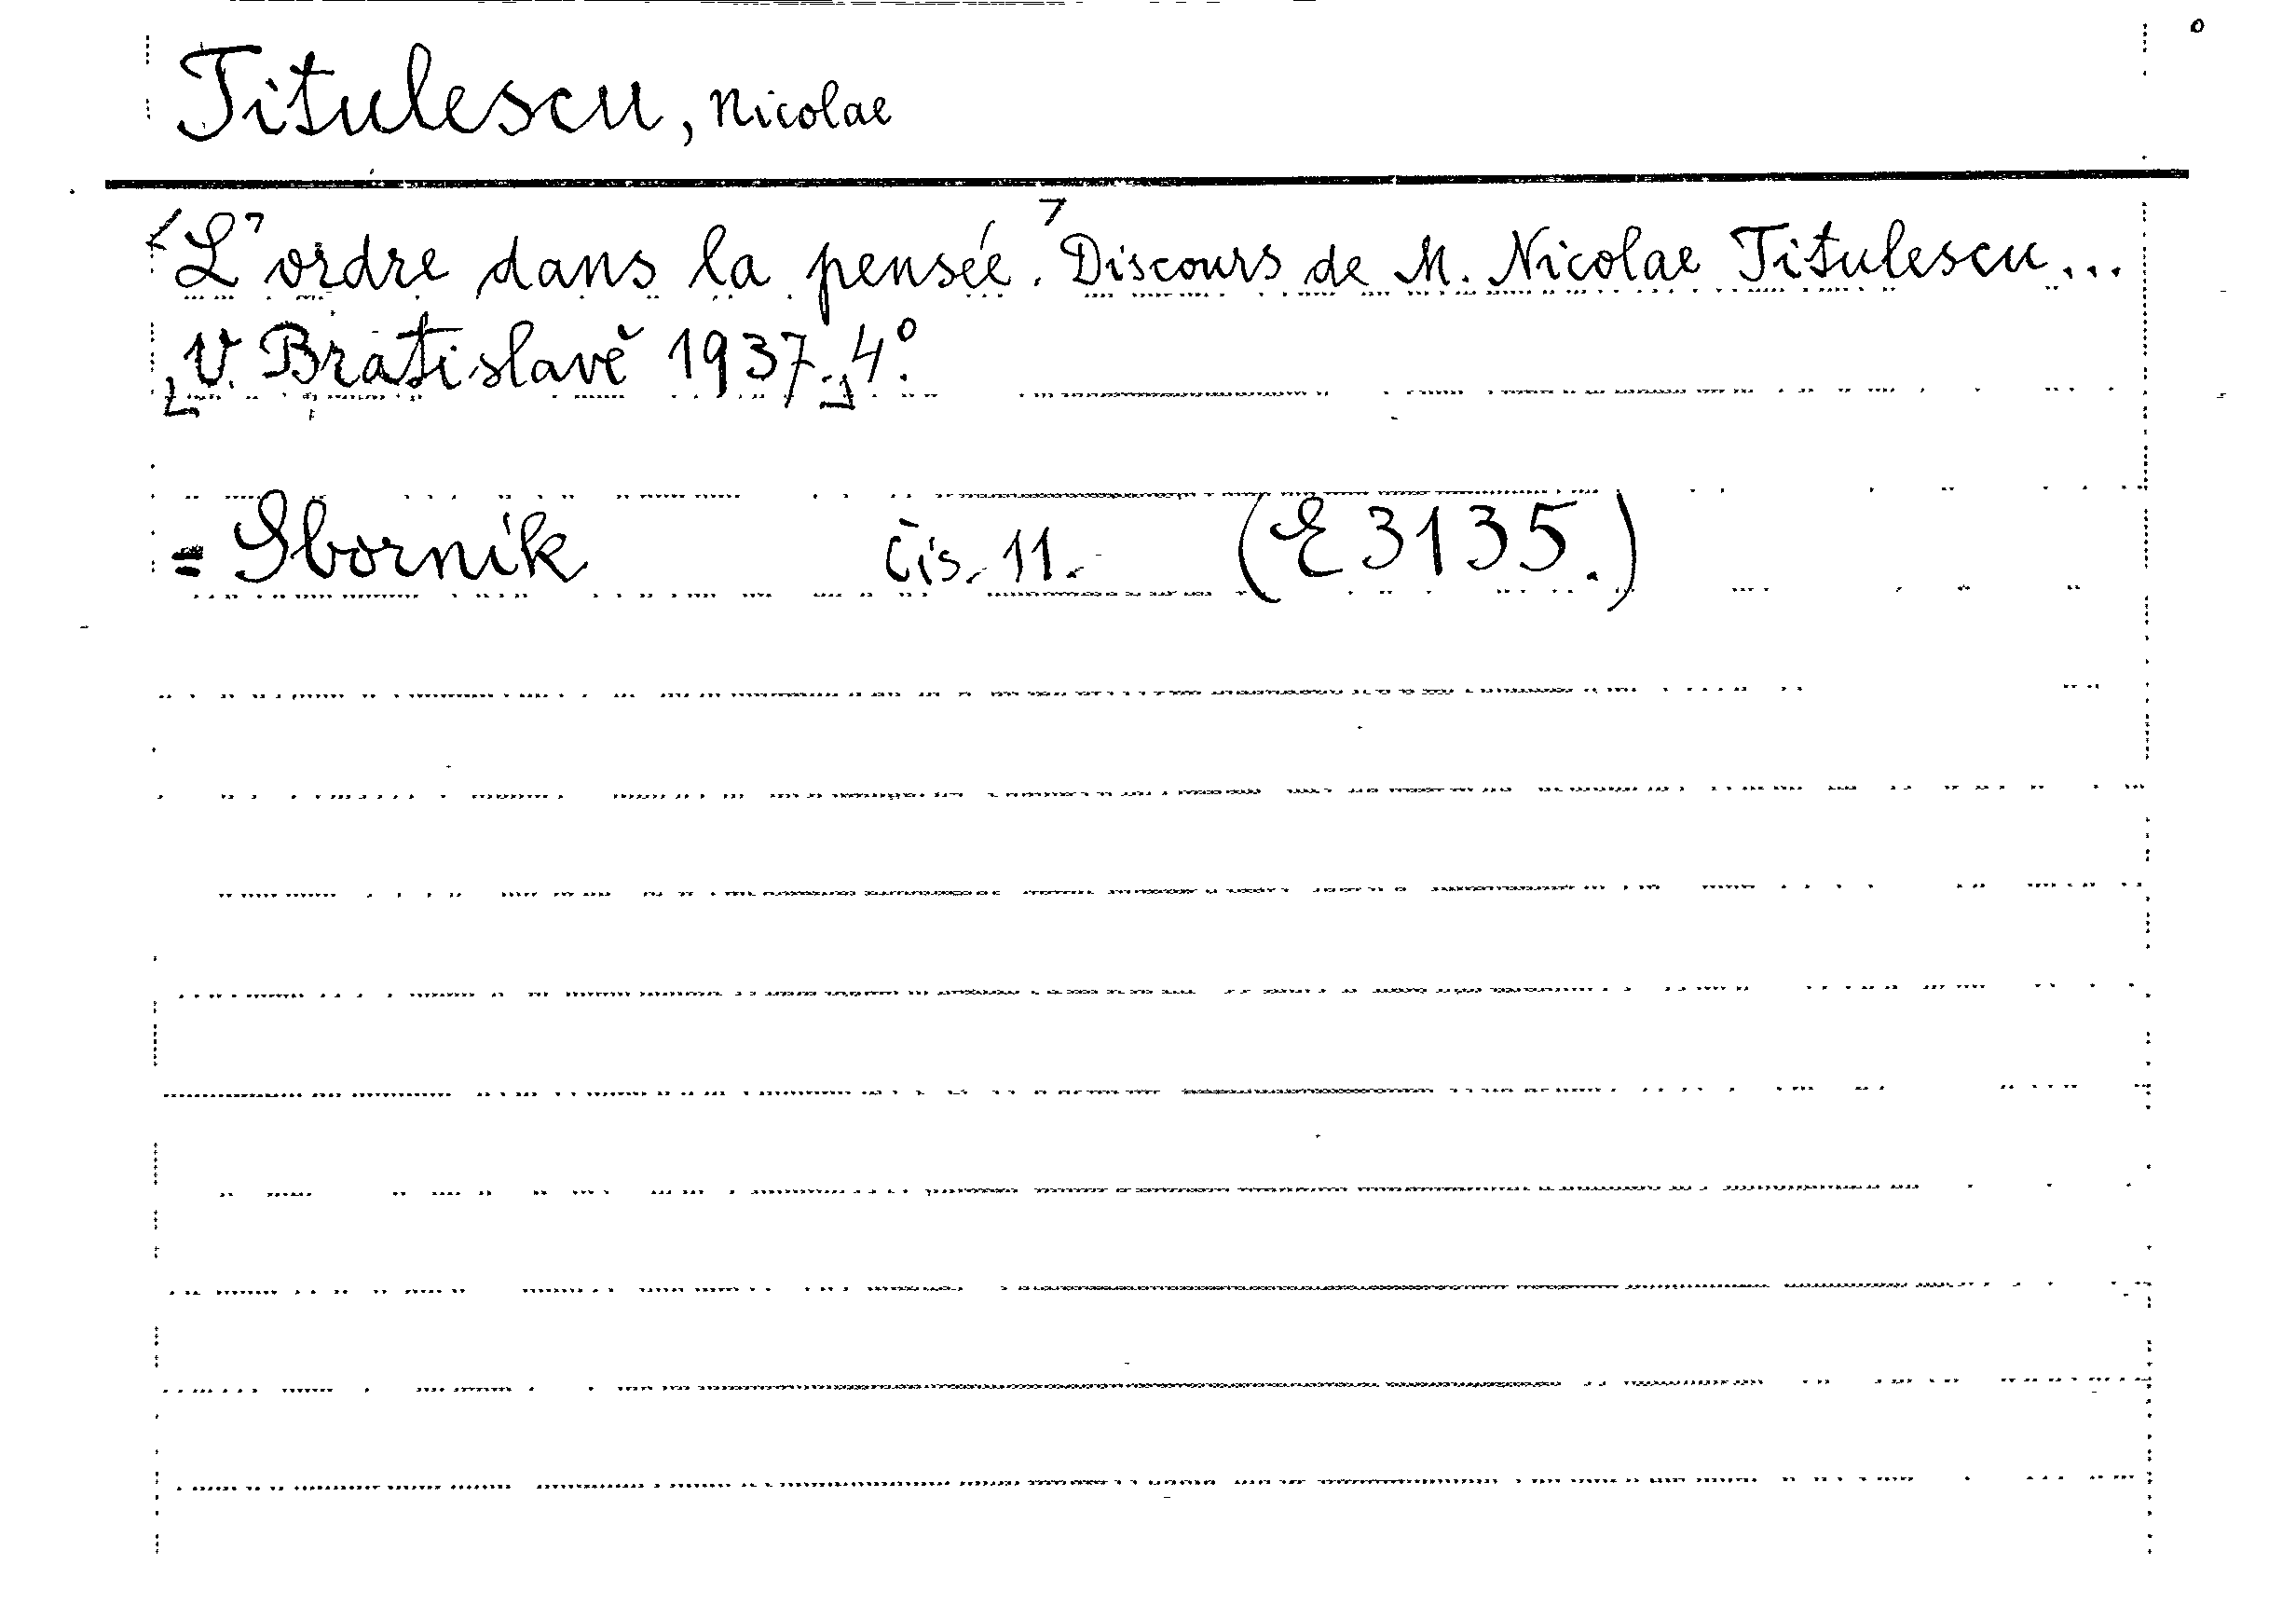 Titulescu, Nicolae
L'ordre dans la pensée. Discours de M. Nicolae Titulescu...
V Bratislavě 1937. 4°.
= Sborník čís. 11. (E 3135.)